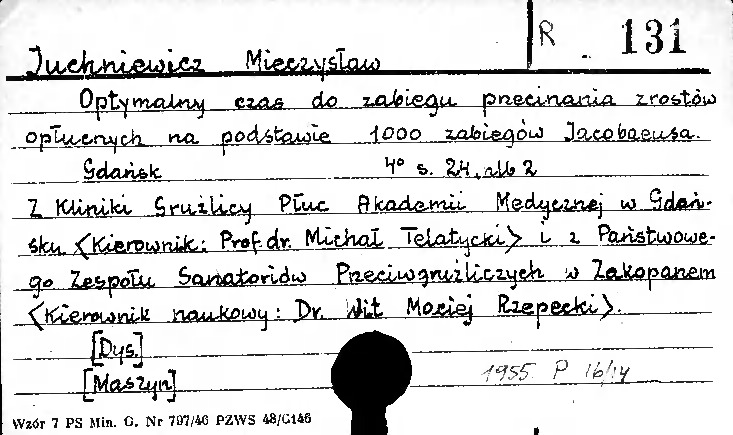 R 131
Juchniewicz Mieczysław
Optymalny czas do zabiegu przecinania zrostów
opłucnych na podstawie 1000 zabiegów Jacobaeusa.
Gdańsk 4° s. 24, alb 2
Z Kliniki Gruźlicy Płuc Akademii Medycznej w Gdań-
sku <Kierownik: Prof. dr. Michał Telatycki> i z Państwowe-
go Zespołu Sanatoriów Przeciwgruźliczych w Zakopanem
<Kierownik naukowy: Dr. Wit Maciej Rzepecki>.
[Dys.]
[Maszyn]
1955 P 16/14
Wzór 7 PS Min. O. Nr 797/46 PZWS 48/G146